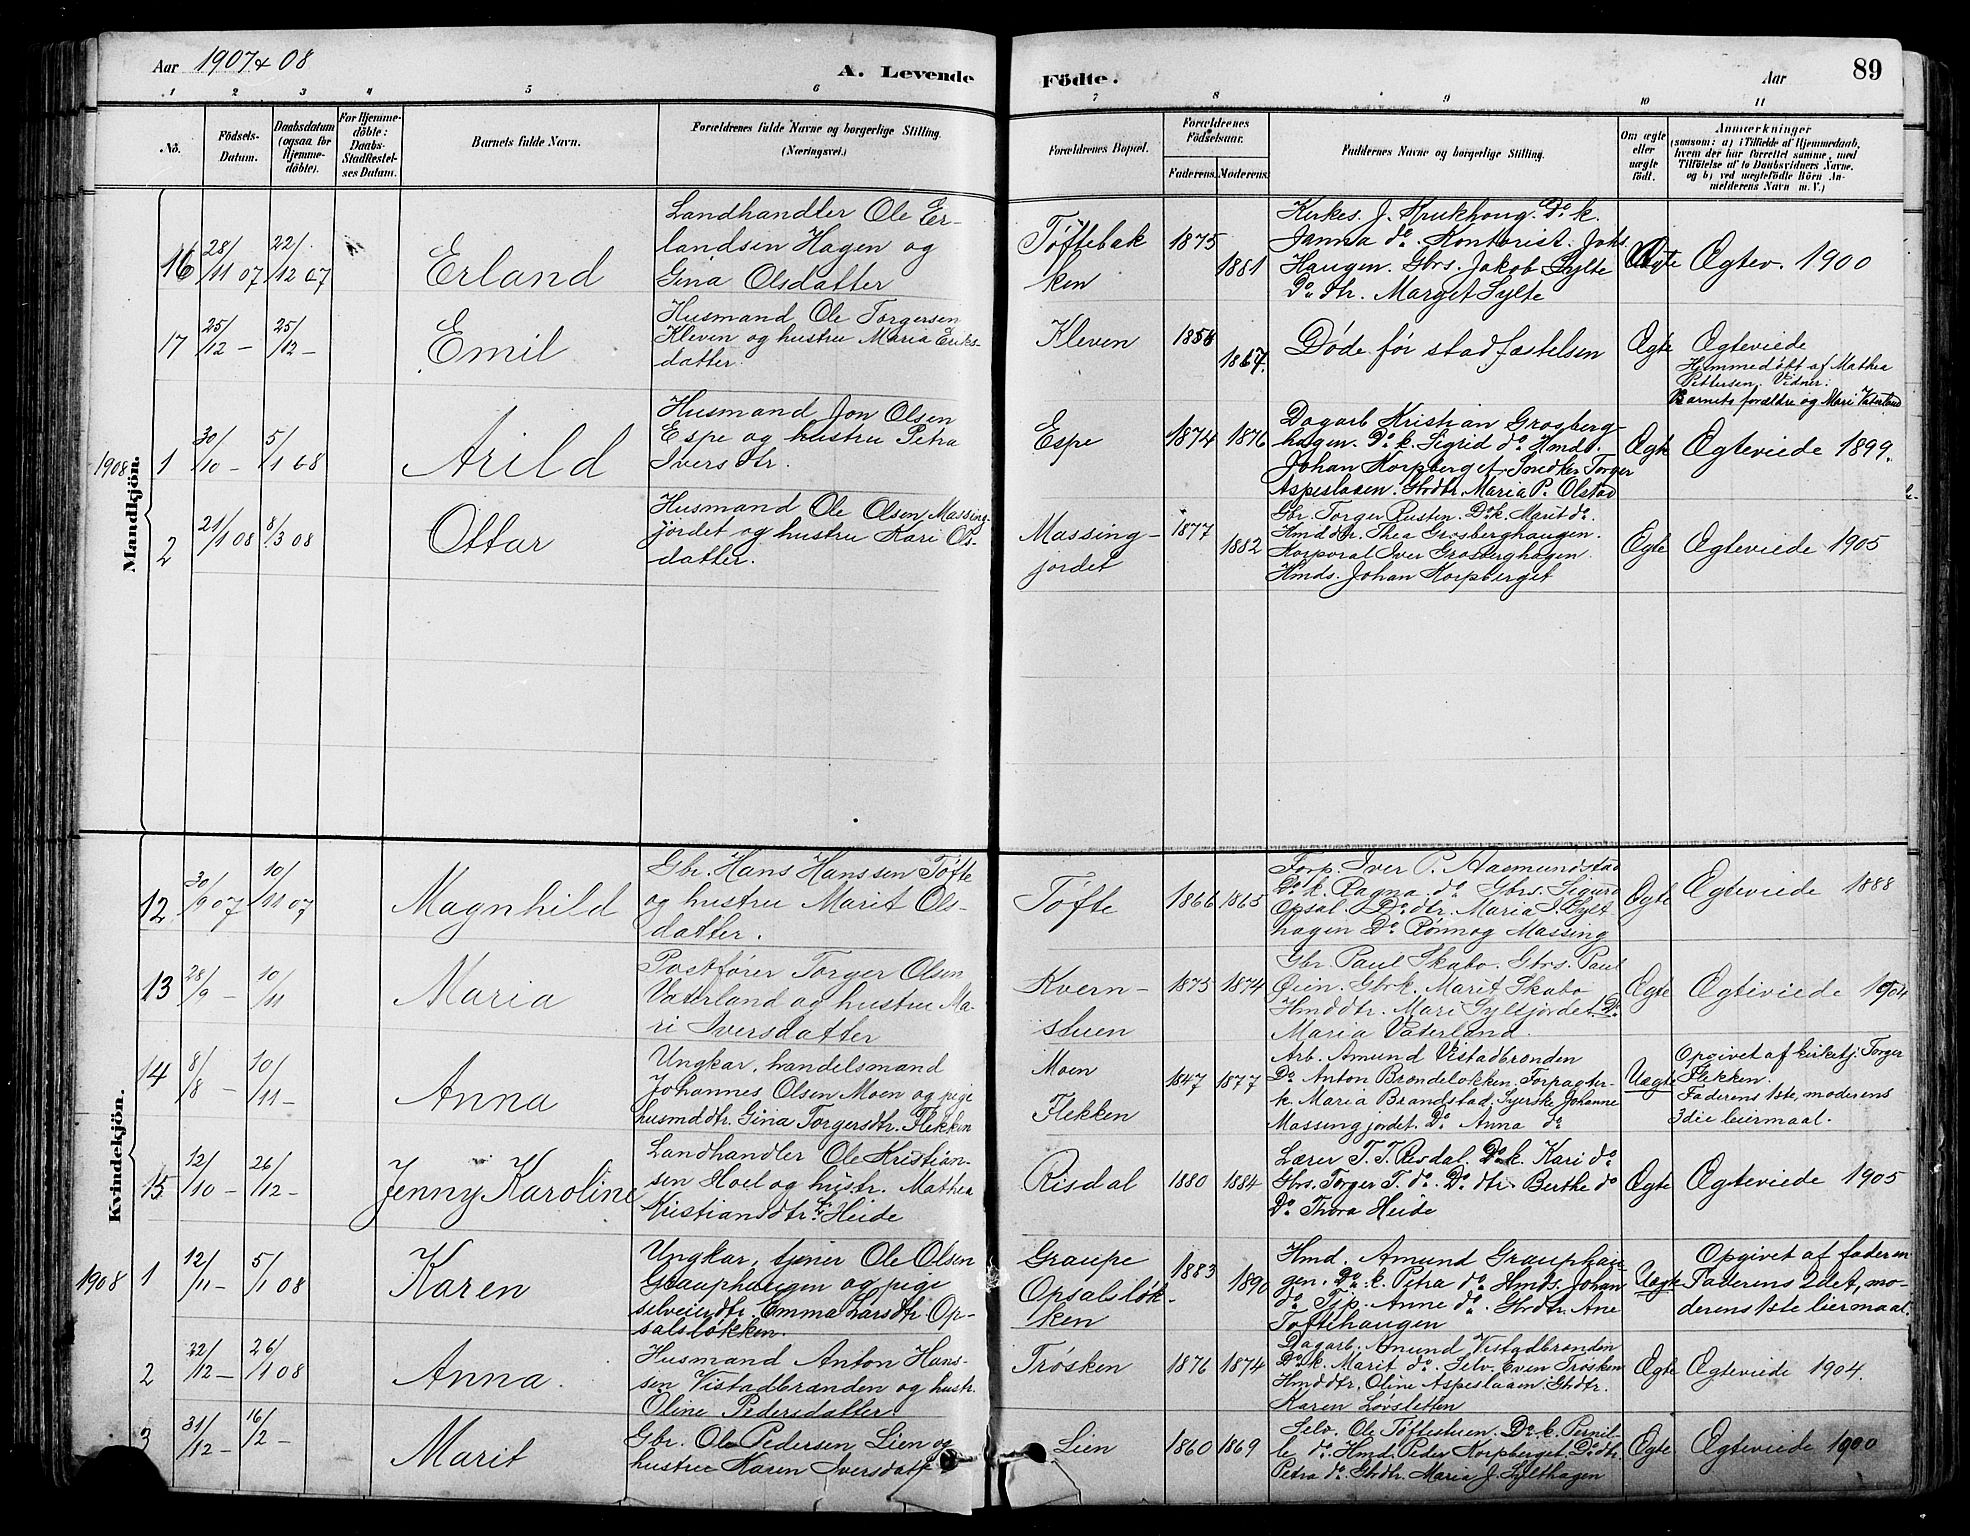 Aar 1907 & 08
A. Levende Födte.
Aar
89
1 2 3 4 5 6 7 8 9 10 11
No.
Födsels-
Datum.
Daabsdatum
(ogsaa for
Hjemme-
döbte).
For Hjemme-
döbte:
Daabs-
Stadfæstel-
ses Datum.
Barnets fulde Navn.
Forældrenes fulde Navne og borgerlige Stilling.
(Næringsvei.)
Forældrenes Bopæl.
Forældrenes
Födselsaar.
Faderens. Moderens.
Faddernes Navne og borgerlige Stilling.
Om ægte
eller
uægte
födt.
Anmærkninger
(saasom: a) i Tilfælde af Hjemmedaab,
hvem der har forrettet samme, med
Tilföielse af to Daabsvidners Navne.
og b) ved uægtefödte Börn An-
melderens Navn m. V.)
Mandkjön.
16
28/11 07
22/12 07
Erland
Landhandler Ole Er-
landsen Hagen og
Gina Olsdatter
Tøftebak
ken
1875
1881
Kirkes. J. Krukhoug. Do k.
Janna do. Kontorist. Johs.
Haugen. Gbrs. Jakob Sylte
Do. dtr. Marget Sylte
Ægte
Ægtev. 1900
17
25/12 -
25/12 -
Emil
Husmand Ole Torgersen
Kleven og hustru Maria Eriks-
datter.
Kleven
1858
1867.
Døde før stadfæstelsen
Ægte
Ægteviede
Hjemmedøbt af Mathea
Pettersen. Vidner:
Barnets forældre og Mari Vaterland
1908
1
30/10 -
5/1 08
Arild
Husmand Jon Olsen
Espe og hustru Petra
Ivers dtr.
Espe
1874
1876
Dagarb Kristian Grosberg-
hagen. Do k. Sigrid do. Hmds.
Johan Korpberget. Smedker Torger
Aspeslaaen. Gbrdtr. Maria P. Olstad
Ægte
Ægteviede 1899.
2
21/1 08
8/3 08
Ottar
Husmand Ole Olsen Massing-
jordet og hustru Kari Ols-
datter.
Massing-
jordet
1877
1882
Gbr. Torger Rusten. Do k. Marit do.
Hmddtr. Thea Grosberghaugen.
Korporal Iver Grosberghagen
Hmds. Johan Korpberget
Egte
Ægteviede 1905
Kvindekjön.
12
30/9 07
10/11 07
Magnhild
Gbr. Hans Hanssen Tøfte
og hustru Marit Ols-
datter.
Tøfte
1866
1865
Forp. Iver P. Aasmundstad
Do. k. Ragna do Gbrs. Sigurd
Opsal. Do dtr. Maria I. Sylt-
hagen Do Rønnog Massing
Ægte
Ægteviede 1888
13
28/9 -
10/11
Maria
Postfører Torger Olsen
Vaterland og hustru Ma-
ri Iversdatter
Kvern-
stuen
1875
1874
Gbr. Paul Skabo. Gbrs. Paul
Øien. Gbrk. Marit Skabo
Hmddtr. Mari Syltjordet. Do
Maria Vaterland.
Ægte
Ægteviede 1904
14
8/8 -
10/11 -
Anna
Ungkar, handelsmand
Johannes Olsen Moen og pige
husmddtr. Gina Torgersdtr. Flekken
Moen
Flekken
1847
1877
Arb. Amund Vistadbrenden
Do. Anton Brendeløkken, Forpagter-
k. Maria Brandstad. Syerske Johanne
Massingjordet. Do Anna do
Uægte
Opgivet af kirketj. Torger
Flekken.
Faderens 1ste, moderens
3die leiermaal.
15
12/10 -
26/12 -
Jenny Karoline
Landhandler Ole Kristian-
sen Hoel og hustr. Mathea
Kristiansdtr. f. Heide
Risdal
1880
1884
Lærer T. T. Risdal. Do k. Kari do
Gbrs. Torger T. do. Do. dtr. Berthe do
Do. Thora Heide
Ægte
Ægteviede 1905
1908
1
12/11 -
5/1 08
Karen
Ungkar, tjener Ole Olsen
Grauphaugen og pige
selveierdtr. Emma Larsdtr. Op-
salsløkken.
Graupe
Opsalsløk-
ken
1883
1890
Hmd. Amund Grauphau-
gen. Do. k. Petra do Hmds. Johan
do Tjp. Anne do. Gbrdtr. Ane
Toftehaugen
Uægte
Opgivet af faderen
Faderens 2det, mo-
derens 1ste leiermaal.
2
22/12 -
26/1 08
Anna.
Husmand Anton Hans-
sen Vistadbrænden og hustr.
Oline Pedersdatter.
Trøsken
1876
1874
Dagarb. Amund Vistadbrenden
Do. k. Marit do. Selv. Even Trøsken
Hmddtr. Oline Aspeslaaen. Gbdtr.
Karen Løvsletten
Ægte
Ægteviede 1904.
3
31/12 -
16/2 -
Marit
Gbr. Ole Pedersen Lien og
hustru Karen Iversdatter
Lien
1860
1869
Selv. Ole Tøftestuen. Do k. Pernil-
le do. Hmd. Peder Korpberget. Do dtr.
Petra do. Gbrdtr. Maria J. Sylthagen
Ægte
Ægteviede 1900